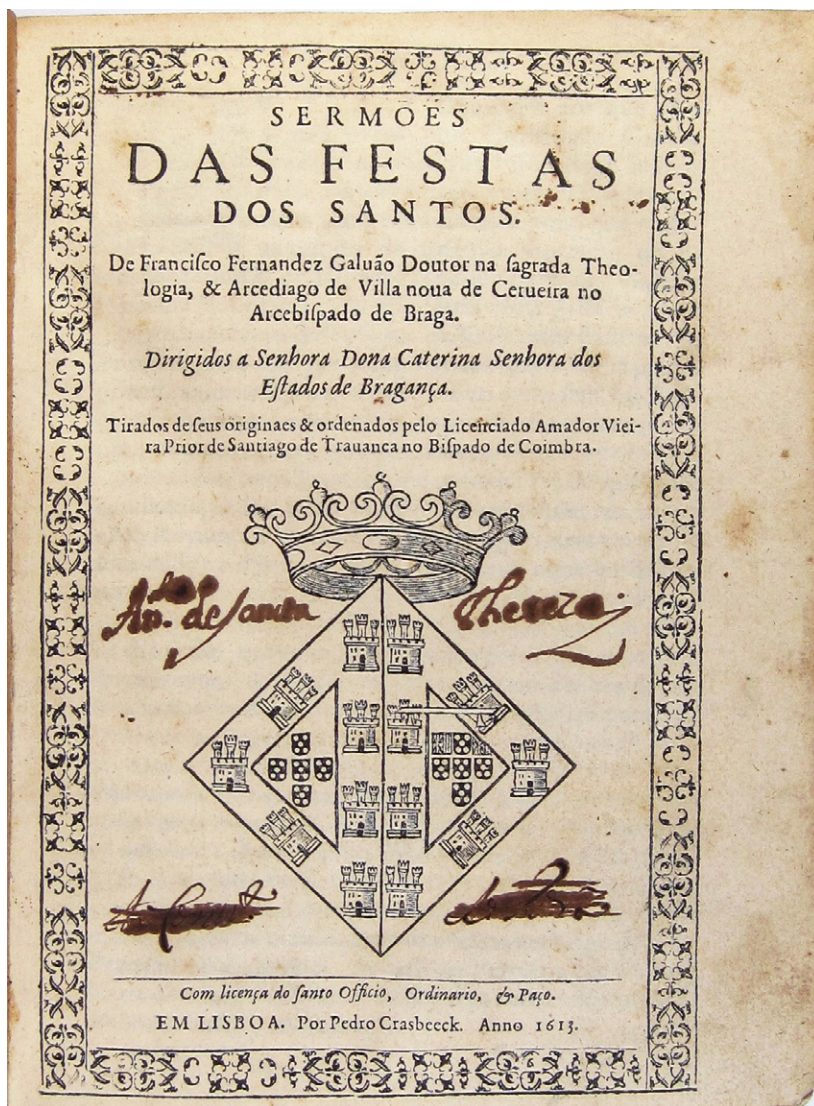 SERMOES
DAS FESTAS
DOS SANTOS.
De Franciſco Fernandez Galuão Doutor na ſagrada Theo-
logia, & Arcediago de Villa noua de Cerueira no
Arcebiſpado de Braga.
Dirigidos a Senhora Dona Caterina Senhora dos
Eſtados de Bragança.
Tirados de ſeus originaes & ordenados pelo Licenciado Amador Viei-
ra Prior de Santiago de Trauanca no Biſpado de Coimbra.
de ſancta Thereza
Com licença do ſanto Officio, Ordinario, & Paço.
EM LISBOA. Por Pedro Crasbeeck. Anno 1613.